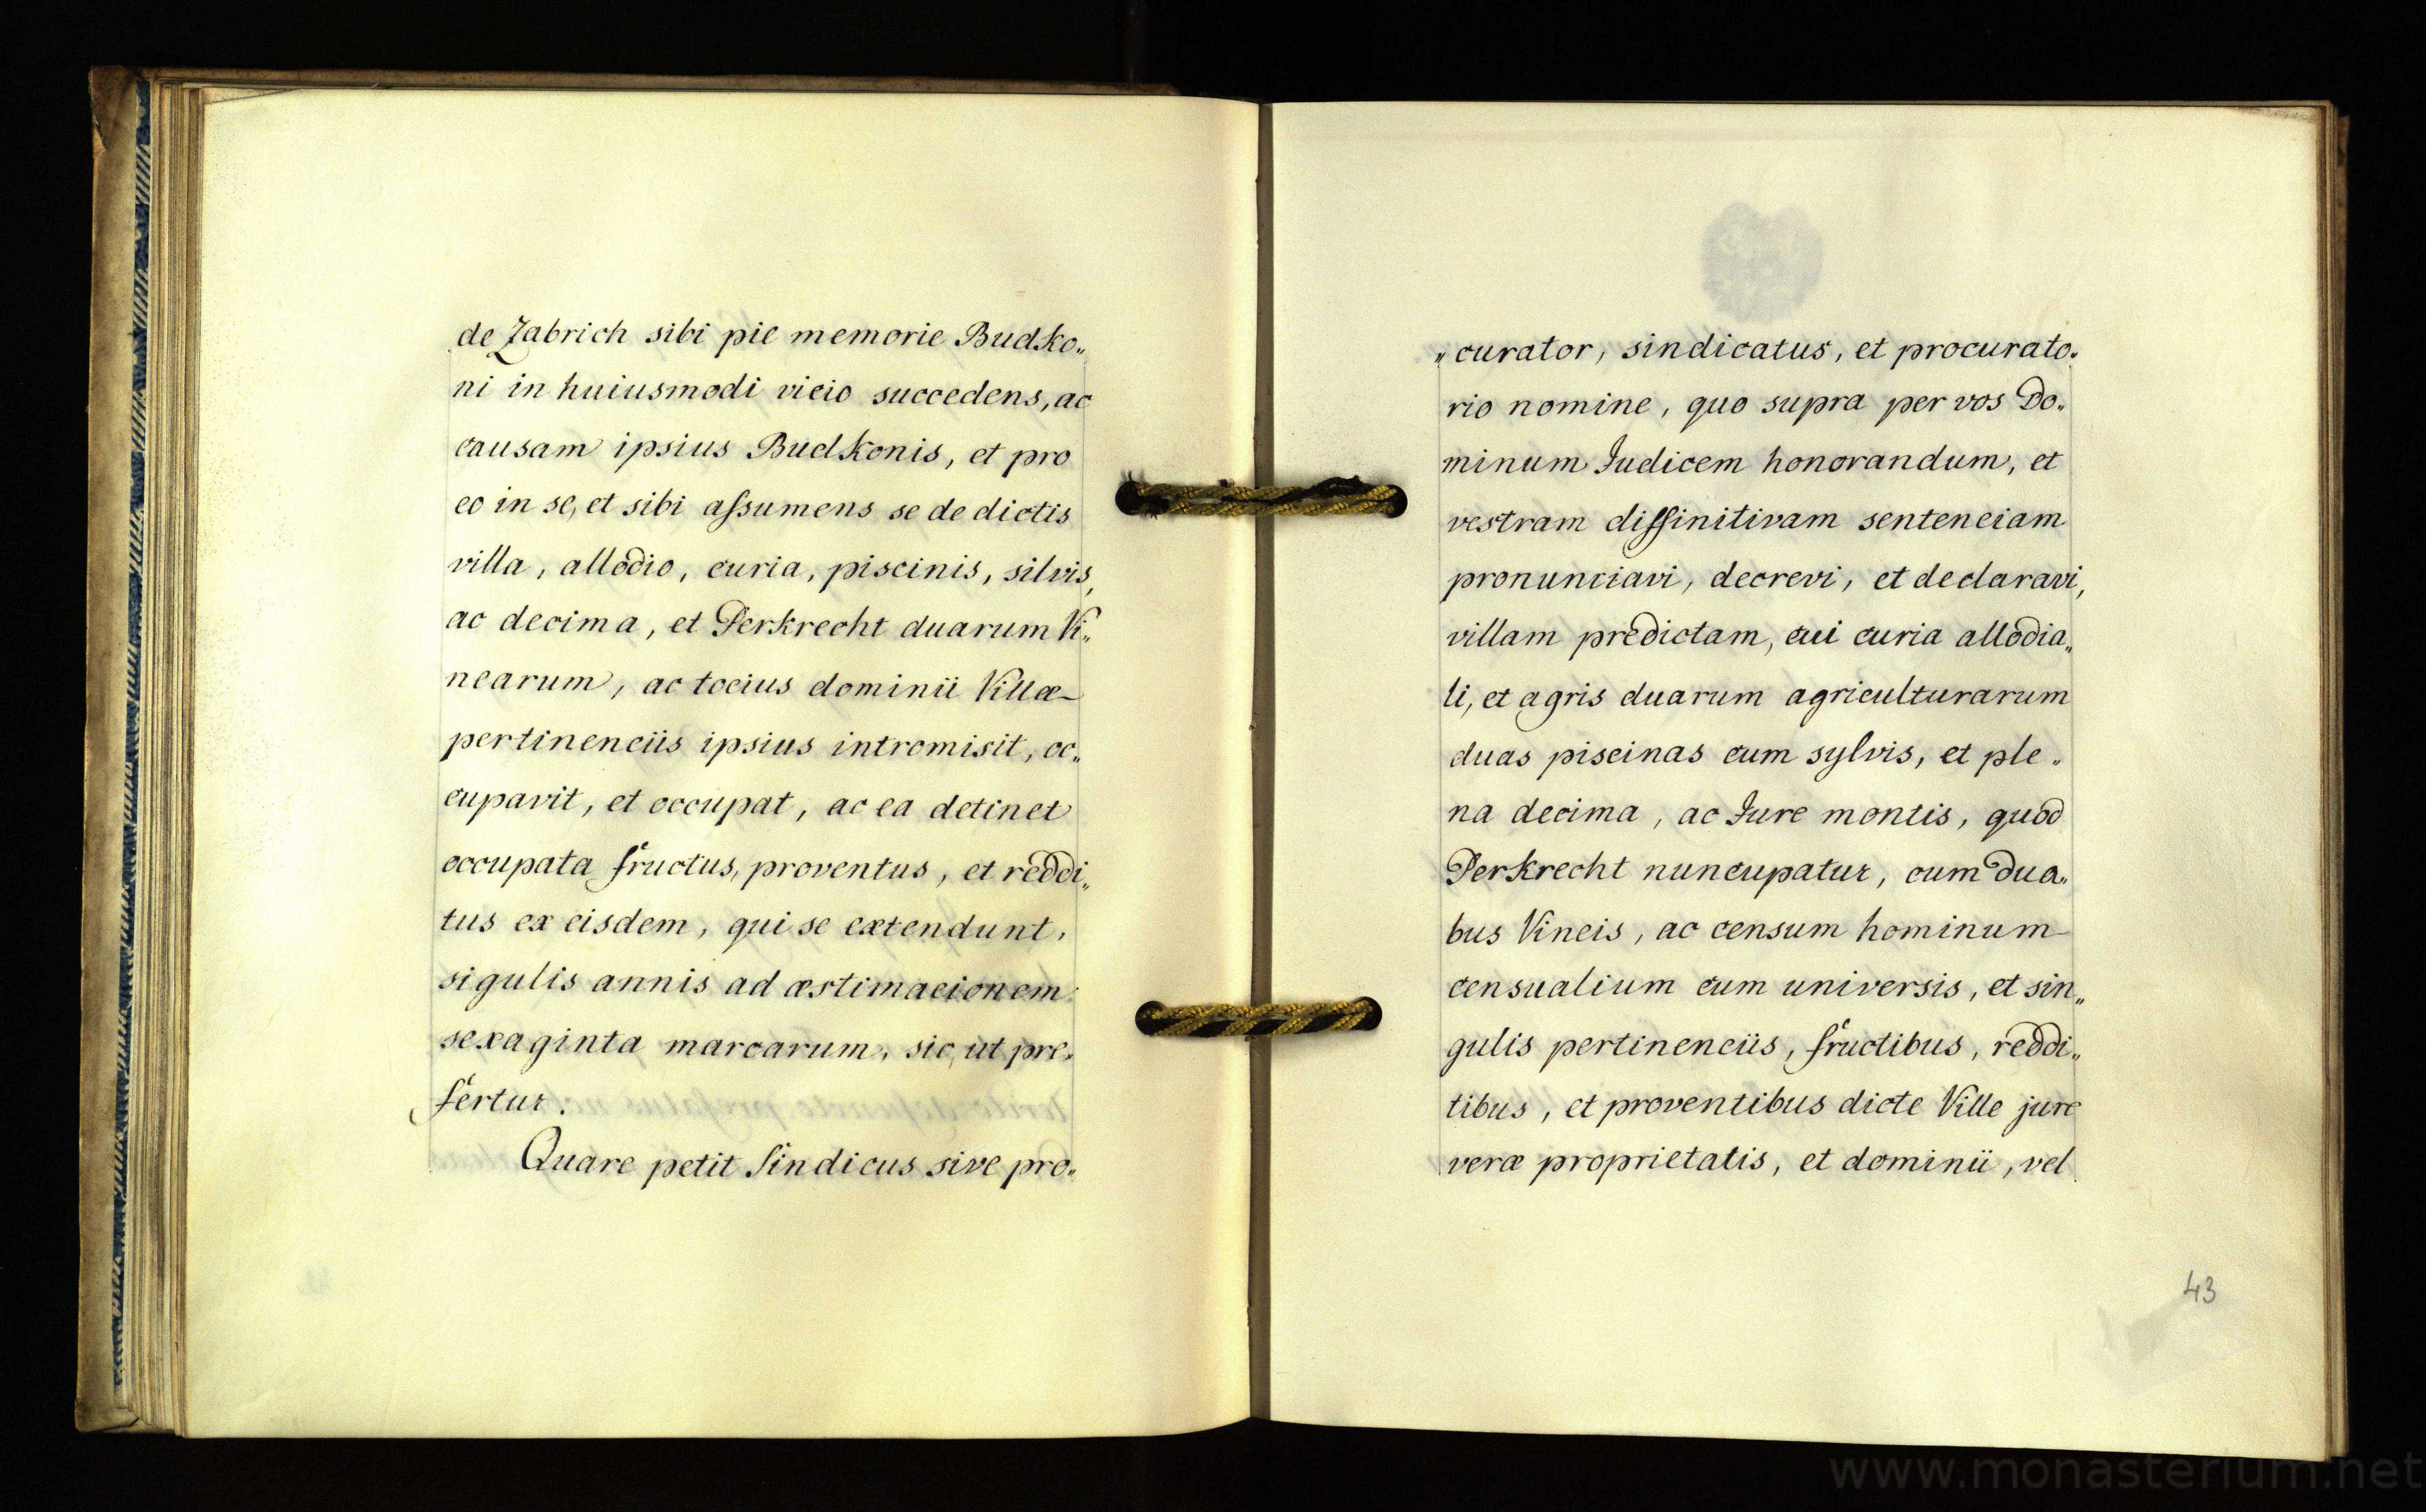 de Zabrich sibi pie memorie Budko„
ni in huiusmodi vicio succedens, ac
causam ipsius Budkonis, et pro
eo in se, et sibi aſsumens se de dictis
villa, allodio, curia, piscinis, silvis,
ac decima, et Perkrecht duarum Vi„
nearum, ac tocius dominii Villæ
pertinenciis ipsius intromisit, oc„
cupavit, et occupat, ac ea detinet
occupata fructus, proventus, et reddi„
tus ex eisdem, qui se extendunt,
sigulis annis ad æstimacionem
sexaginta marcarum, sic, ut pre„
fertur.
Quare petit Sindicus sive pro„
„curator, sindicatus, et procurato„
rio nomine, quo supra per vos Do„
minum Judicem honorandum, et
vestram diffinitivam sentenciam
pronunciavi, decrevi, et declaravi,
villam predictam, cui curia allodia„
li, et agris duarum agriculturarum
duas piscinas cum sylvis, et ple„
na decima, ac Jure montis, quod
Perkrecht nuncupatur, cum dua„
bus Vineis, ac censum hominum
censualium cum universis, et sin„
gulis pertinenciis, fructibus, reddi„
tibus, et proventibus dicte Ville jure
veræ proprietatis, et dominii, vel
43
www.monasterium.net